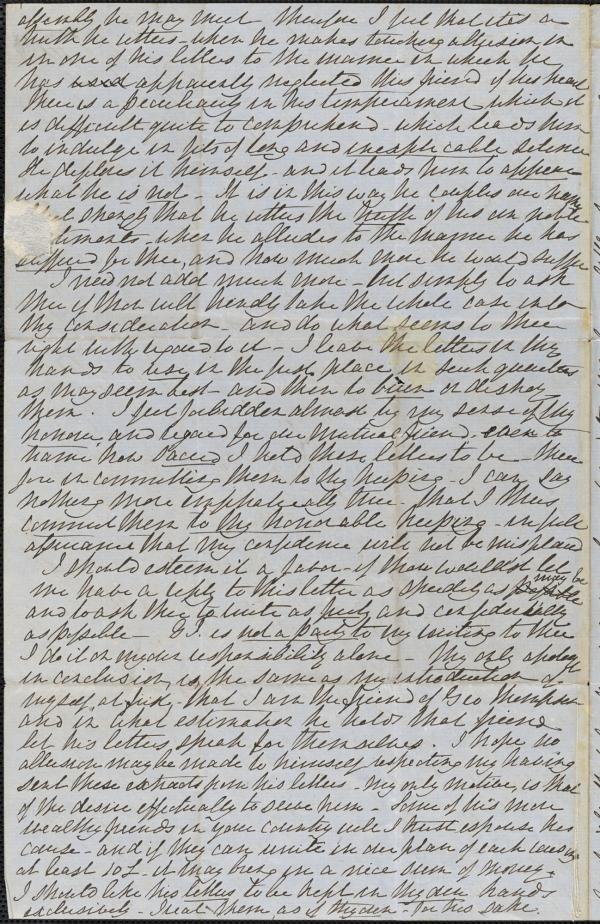 assembly he may meet Therefore I feel that it is a
truth he utters - when he makes touching allusion in
in one of his letters to the manner in which he
has apparently neglected this friend of his heart
There is a peculiarity in his temperament which it
is difficult quite to comprehend - which leads him
to indulge in fits of long and inexplicable silence
He deplores it himself - and it leads him to appear
what he is not. It is in this way he couples our
strangly that he utters the truth of his own noble
timents - when he alludes to the manner he has
suffered for thee, and how much more he would suffer
I need not add much more - but simply to ask
thee if thou will kindly take the whole case into
thy consideration - and do what seems to thee
right with regard to it - I leave the letters in thy
hands to use in the first place in such quarters
as may seem best - and then to burn or destroy
them. I feel forbidden almost by my sense of thy
honour and regard for our mutual friend - even to
name how sacred I hold these letters to be - there
fore in committing them to thy keeping - I can say
nothing more emphatically true - that I thus
commend them to thy honorable keeping - in full
assurance that my confidence will not be misplaced
I should esteem it a favor - if thou wouldst let
me have a reply to this letter as speedily as may be
and to ask thee to write as freely and confidentially
as possible - is not a party to my writing to thee
I do it on my own responsibility alone - My only apology
in conclusion, is the same as my introduction of
myself at first - that I am the friend of Geo Thompson
and in what estimation he holds that friend
let his letters speak for themselves. I hope no
allusion may be made to himself respecting my having
sent these extracts from his letters - My only motive, is that
of the desire effectually to serve him - Some of his more
wealthy friends in your country will I trust espouse his
cause - and if they can unite in our plan of each
at least 10£ - it may bring in a nice sum of money.
I should like his letters to be kept in thy own hands
exclusively - Treat them as if thy own - for his sake